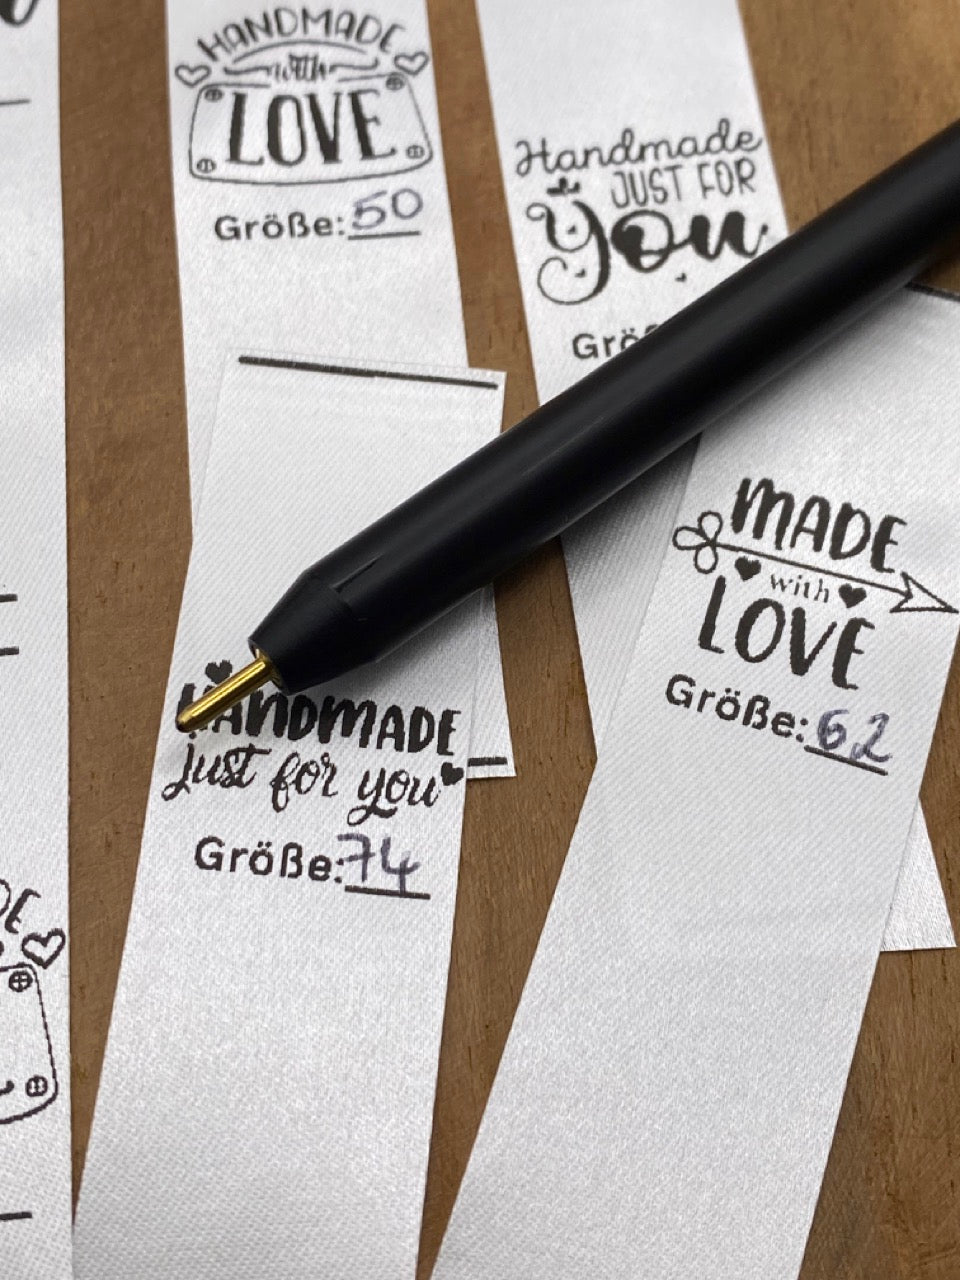 HANDMADE
with
LOVE
Größe: 50
Handmade
JUST FOR
you
Grö
MADE
with
LOVE
Größe: 62
HANDMADE
Just for you
Größe: 74